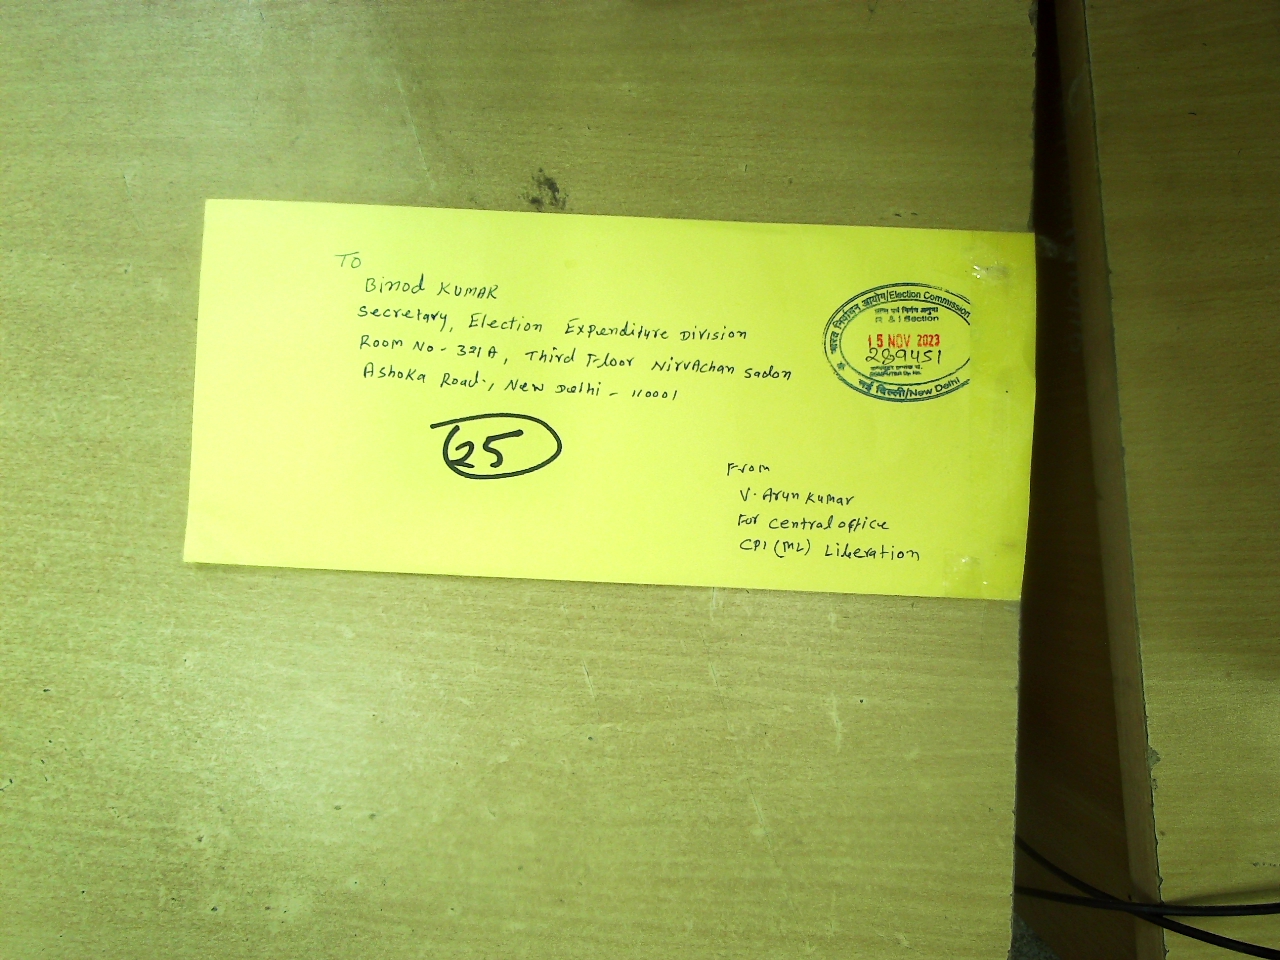 To
Binod KUMAR
Secretary, Election Expenditure Division
Room No - 321A, Third Floor NirvAchan Sadan
Ashoka Road., New Delhi - 110001
25
भारत निर्वाचन आयोग/Election Commission
R & I Section
15 NOV 2023
289451
नई दिल्ली/New Delhi
From
V. Arun Kumar
For Central office
CPI (ML) Liberation